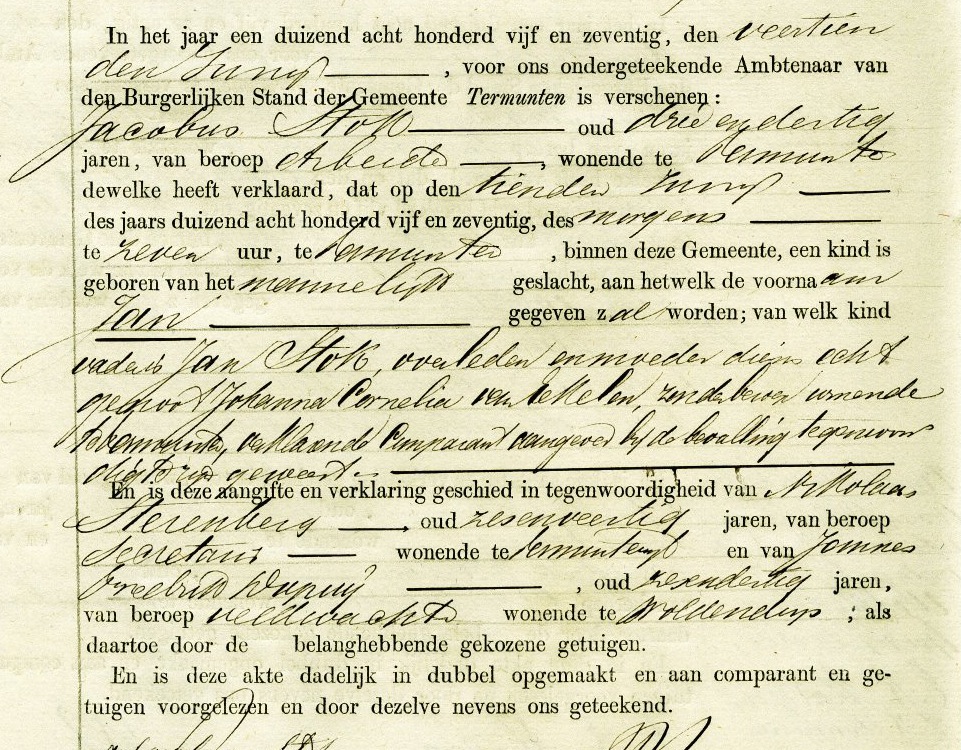 In het jaar een duizend acht honderd vijf en zeventig, den veertien
den Junij , voor ons ondergeteekende Ambtenaar van
den Burgerlijken Stand der Gemeente Termunten is verschenen :
Jacobus Stok oud drie en dertig
jaren, van beroep Arbeider , wonende te Termunten
dewelke heeft verklaard, dat op den tienden Junij
des jaars duizend acht honderd vijf en zeventig, des morgens
te zeven uur, te Termunten , binnen deze Gemeente, een kind is
geboren van het mannelijk geslacht, aan hetwelk de voornaam
Jan gegeven zal worden; van welk kind
vader is Jan Stok, overleden en moeder diens echt
genoot Johanna Cornelia van zonder beroep wonende
te Termunten, verklarende Comparant aangever bij de bevalling tegenwoor
dig te zijn geweest.
En is deze aangifte en verklaring geschied in tegenwoordigheid van Nikolaas
Sterenberg , oud zesenveertig jaren, van beroep
Secretaris wonende te Termunterzijl en van Joannes
Dupuij , oud jaren,
van beroep veldwachter wonende te Woldendorp ; als
daartoe door de belanghebbende gekozene getuigen.
En is deze akte dadelijk in dubbel opgemaakt en aan comparant en ge-
tuigen voorgelezen en door dezelve nevens ons geteekend.